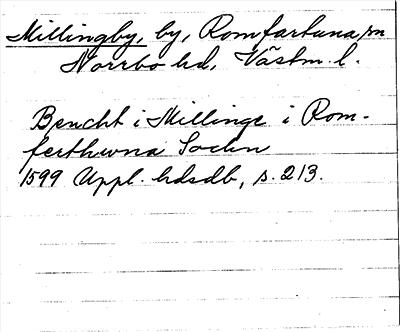 Millingby, by, Romfartuna sn
Norrbo hd, Västm. l.
Bencht i Millinge i Rom-
ferthuna Sochn
1599 Uppl. hdsdb, s. 213.